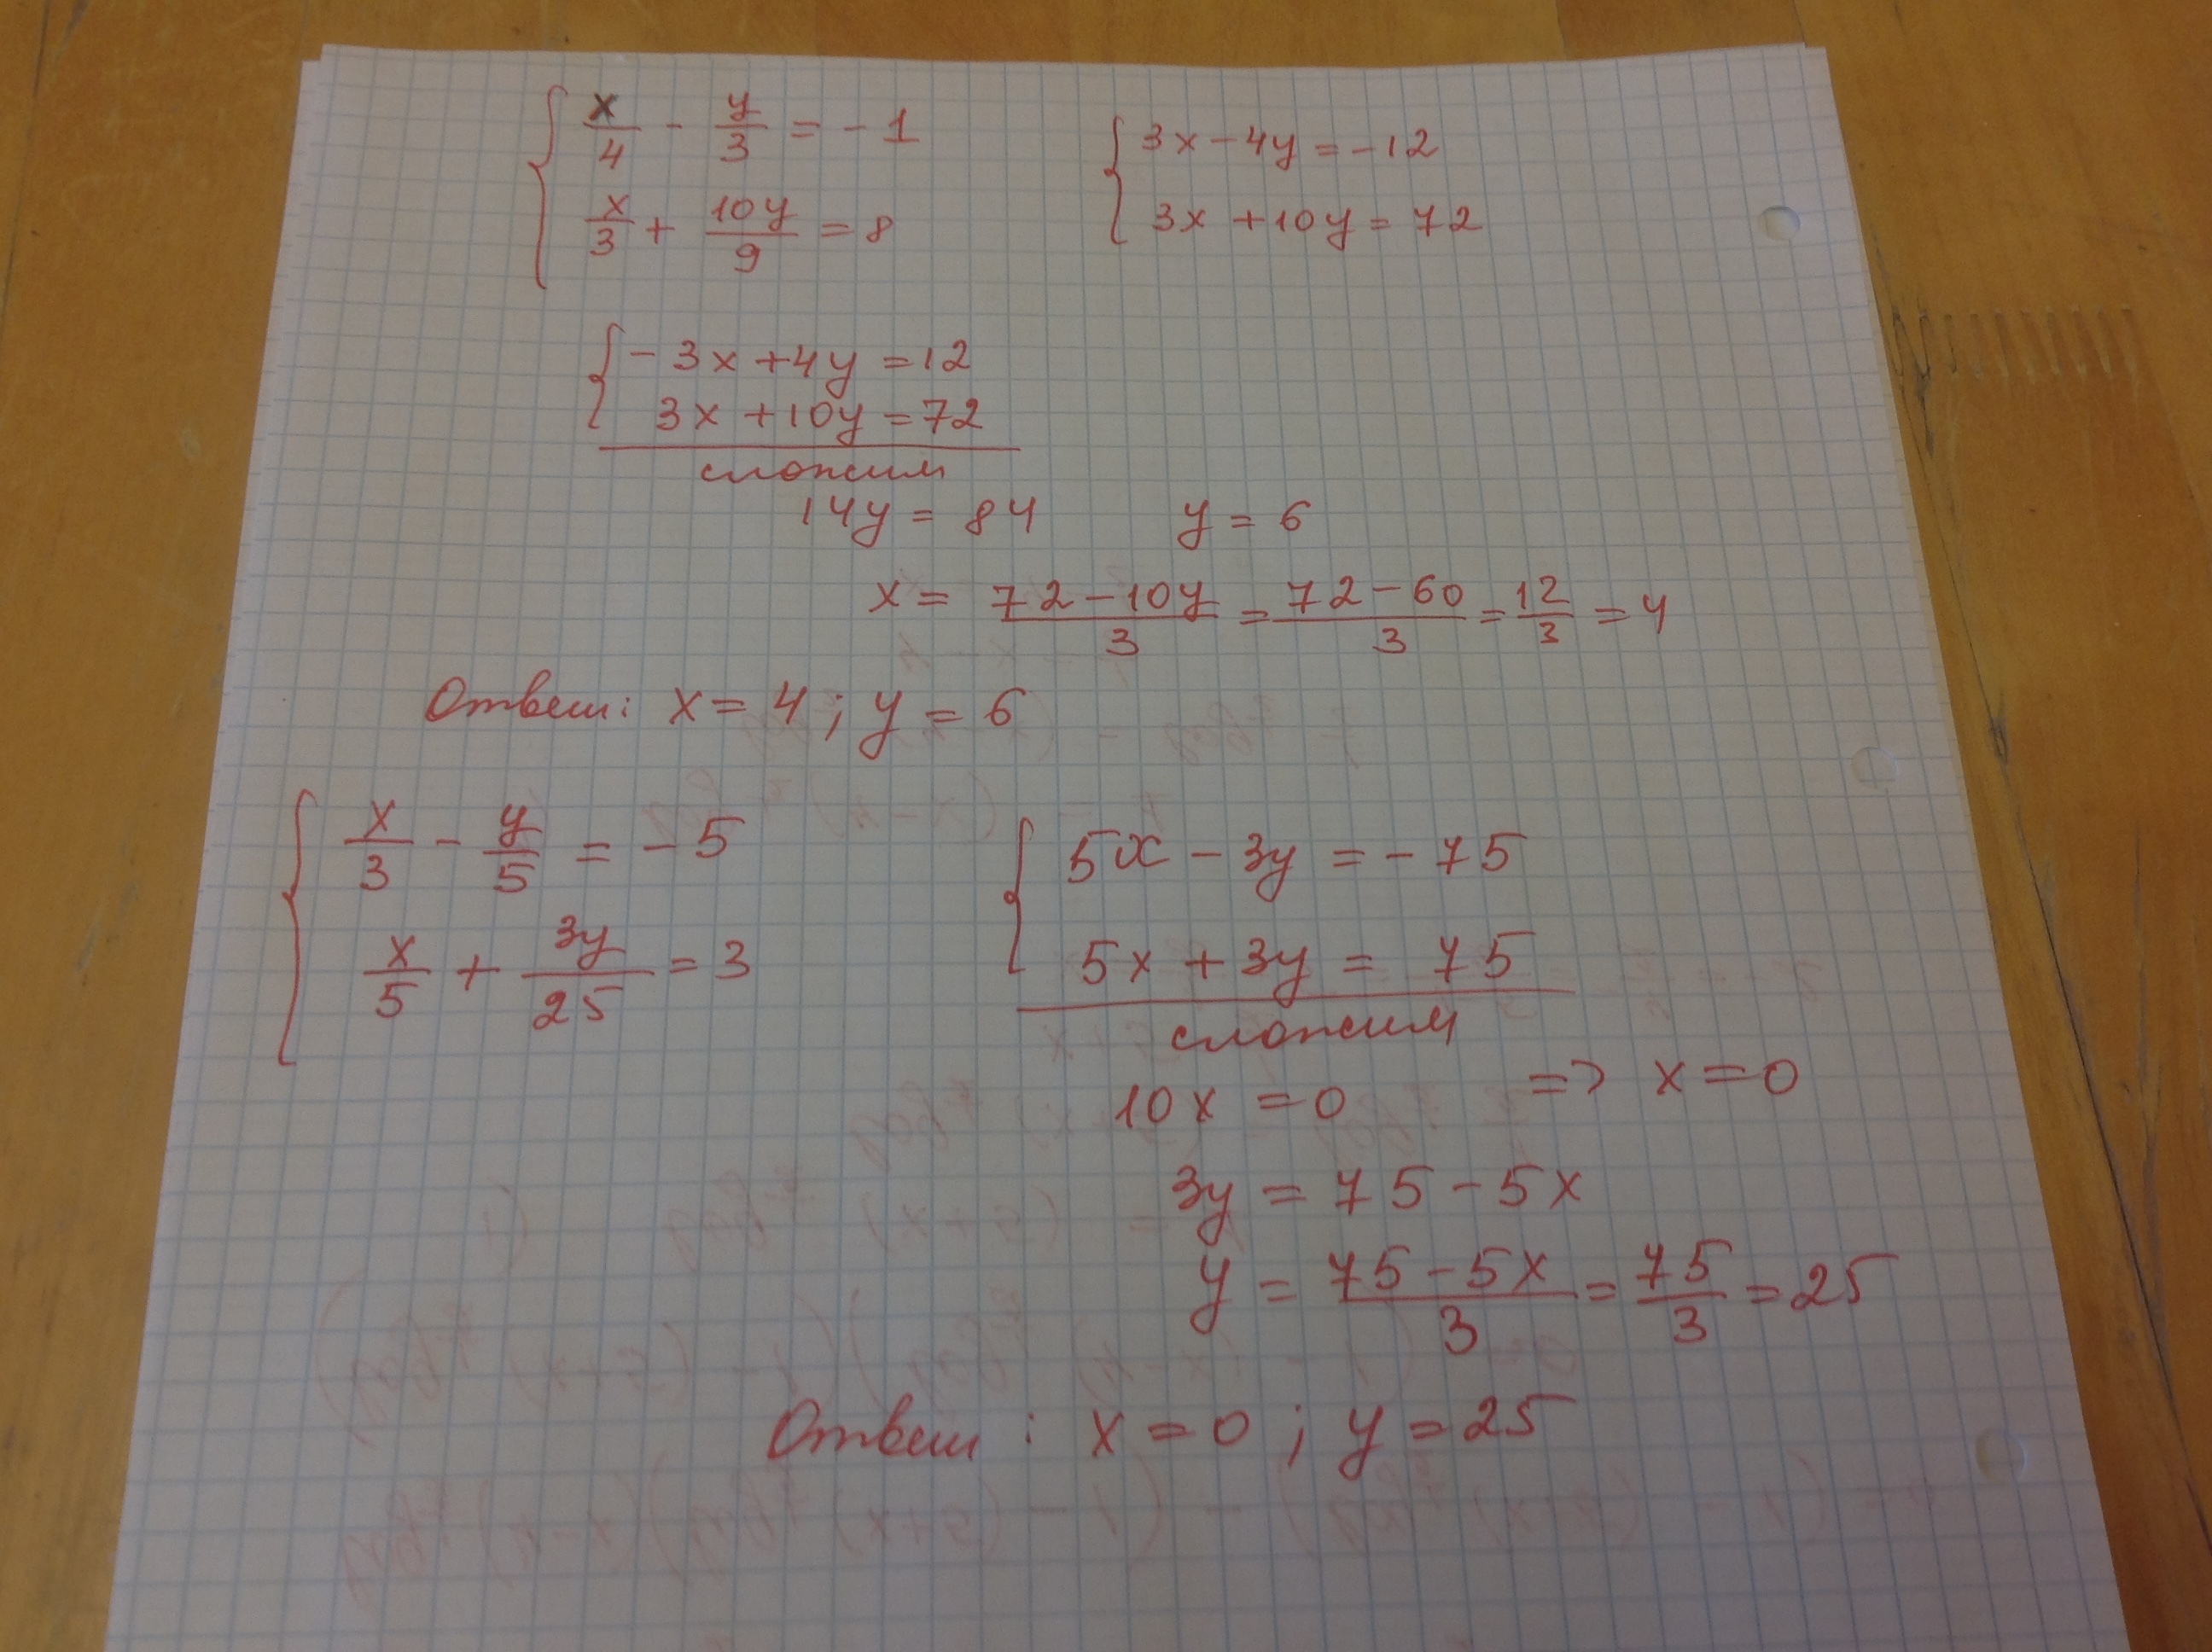 x/4 - y/3 = -1
x/3 + 10y/9 = 8
3x - 4y = -12
3x + 10y = 72
-3x + 4y = 12
3x + 10y = 72
сложим
14y = 84 y = 6
x = (72 - 10y)/3 = (72 - 60)/3 = 12/3 = 4
Ответ: x = 4; y = 6
x/3 - y/5 = -5
x/5 + 3y/25 = 3
5x - 3y = -75
5x + 3y = 75
сложим
10x = 0 => x = 0
3y = 75 - 5x
y = (75 - 5x)/3 = 75/3 = 25
Ответ: x = 0; y = 25